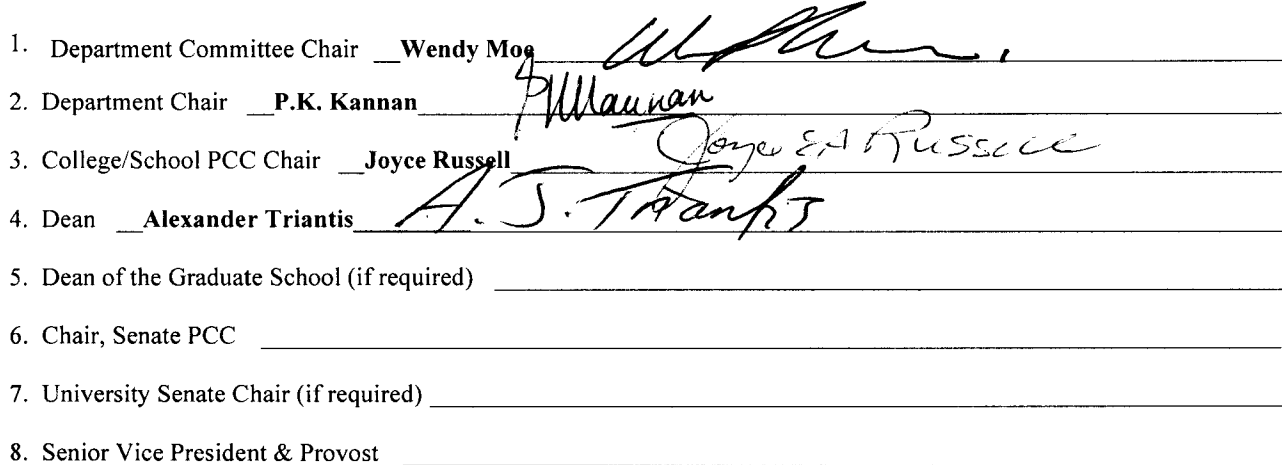 1. Department Committee Chair Wendy Moe
2. Department Chair P.K. Kannan PKKannan
3. College/School PCC Chair Joyce Russell Joyce EA Russell
4. Dean Alexander Triantis A. J. Triantis
5. Dean of the Graduate School (if required)
6. Chair, Senate PCC
7. University Senate Chair (if required)
8. Senior Vice President & Provost